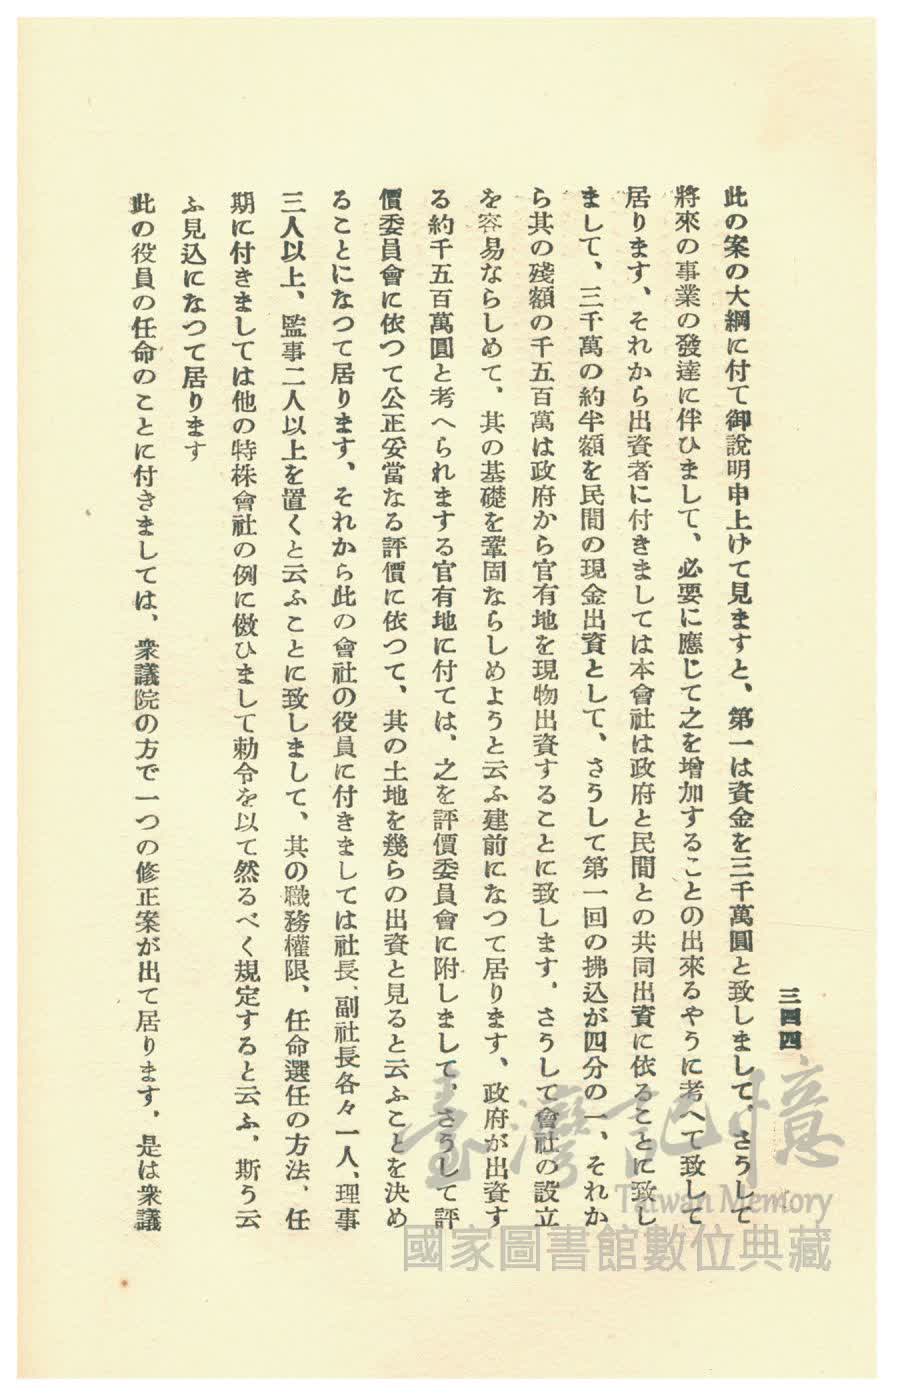 三四四
此の案の大綱に付て御說明申上げて見ますと、第一は資金を三千萬圓と致しまして、さうして
將來の事業の發達に伴ひまして、必要に應じて之を增加することの出來るやうに考へて致して
居ります、それから出資者に付きましては本會社は政府と民間との共同出資に依ることに致し
まして、三千萬の約半額を民間の現金出資として、さうして第一回の拂込が四分の一、それか
ら其の殘額の千五百萬は政府から官有地を現物出資することに致します、さうして會社の設立
を容易ならしめて、其の基礎を鞏固ならしめようと云ふ建前になつて居ります、政府が出資す
る約千五百萬圓と考へられまする官有地に付ては、之を評價委員會に附しまして、さうして評
價委員會に依つて公正妥當なる評價に依つて、其の土地を幾らの出資と見ると云ふことを決め
ることになつて居ります、それから此の會社の役員に付きましては社長、副社長各々一人、理事
三人以上、監事二人以上を置くと云ふことに致しまして、其の職務權限、任命選任の方法、任
期に付きましては他の特株會社の例に倣ひまして勅令を以て然るべく規定すると云ふ、斯う云
ふ見込になつて居ります
此の役員の任命のことに付きましては、衆議院の方で一つの修正案が出て居ります、是は衆議
臺灣記憶
Taiwan Memory
國家圖書館數位典藏